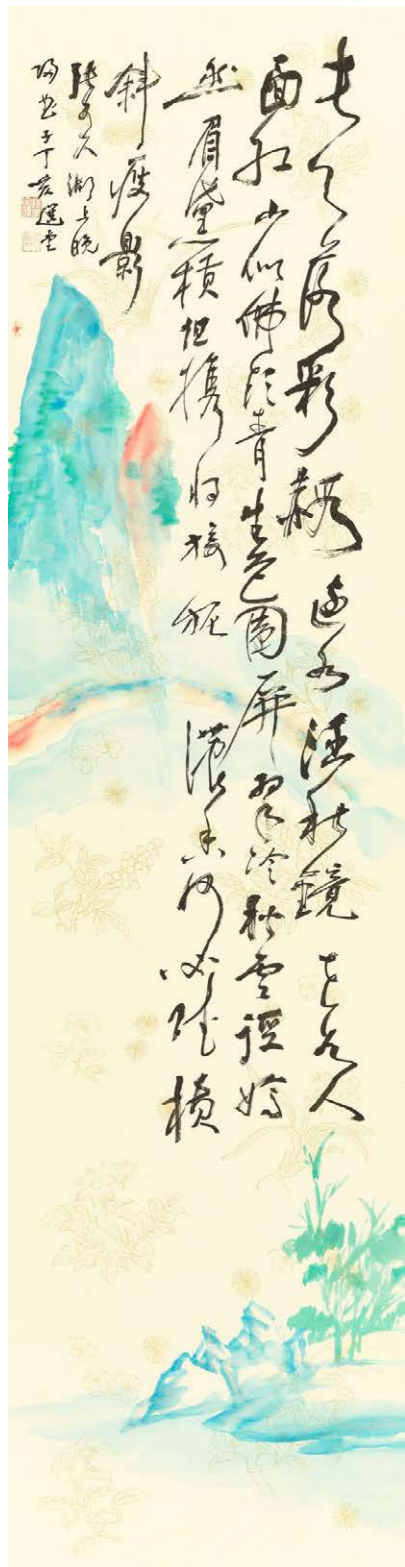 長天落彩霞遠水涵秋鏡花如人
面紅山似佛頭青生色圍屏翠冷松雲徑嫣
然眉黛橫但攜將旖旎濃香何必賦橫
斜瘦影
張可久湖上晚
歸 丁亥選堂